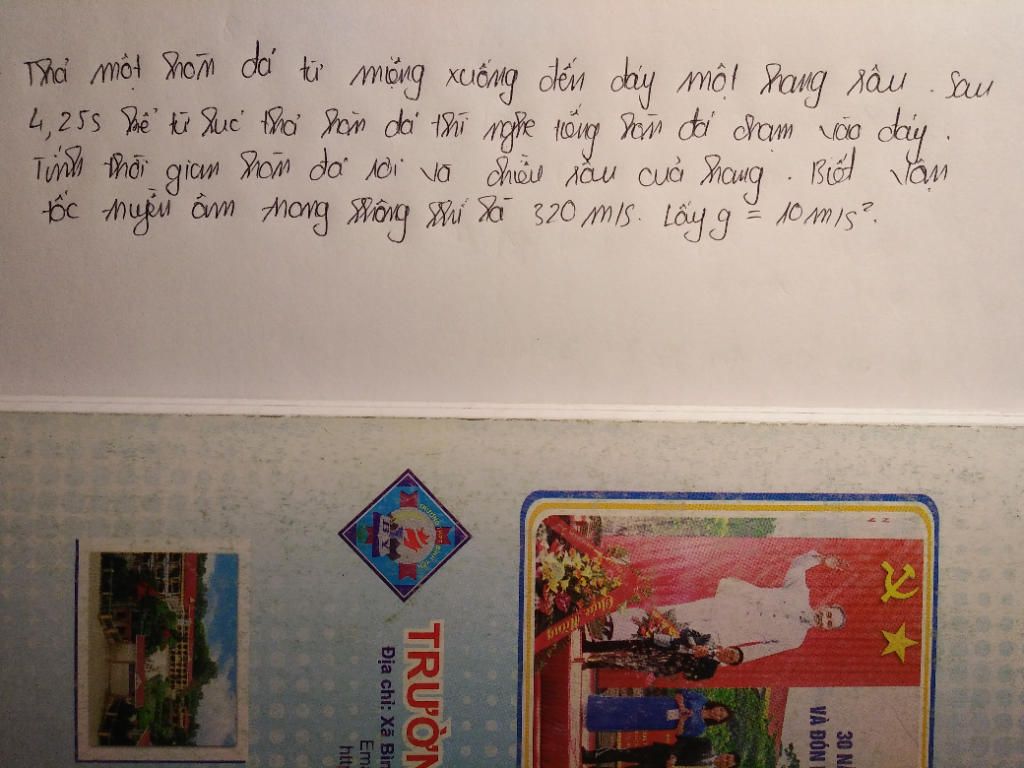 Thả một hòn đá từ miệng xuống đến đáy một hang sâu. Sau
4,25s kể từ lúc thả hòn đá thì nghe tiếng hòn đá chạm vào đáy.
Tính thời gian hòn đá rơi và chiều sâu của hang. Biết vận
tốc truyền âm trong không khí là 320 m/s. Lấy g = 10 m/s².
TRƯỜN
Địa chỉ: Xã Bìn
Ema
htt
30 N
VÀ ĐÓN